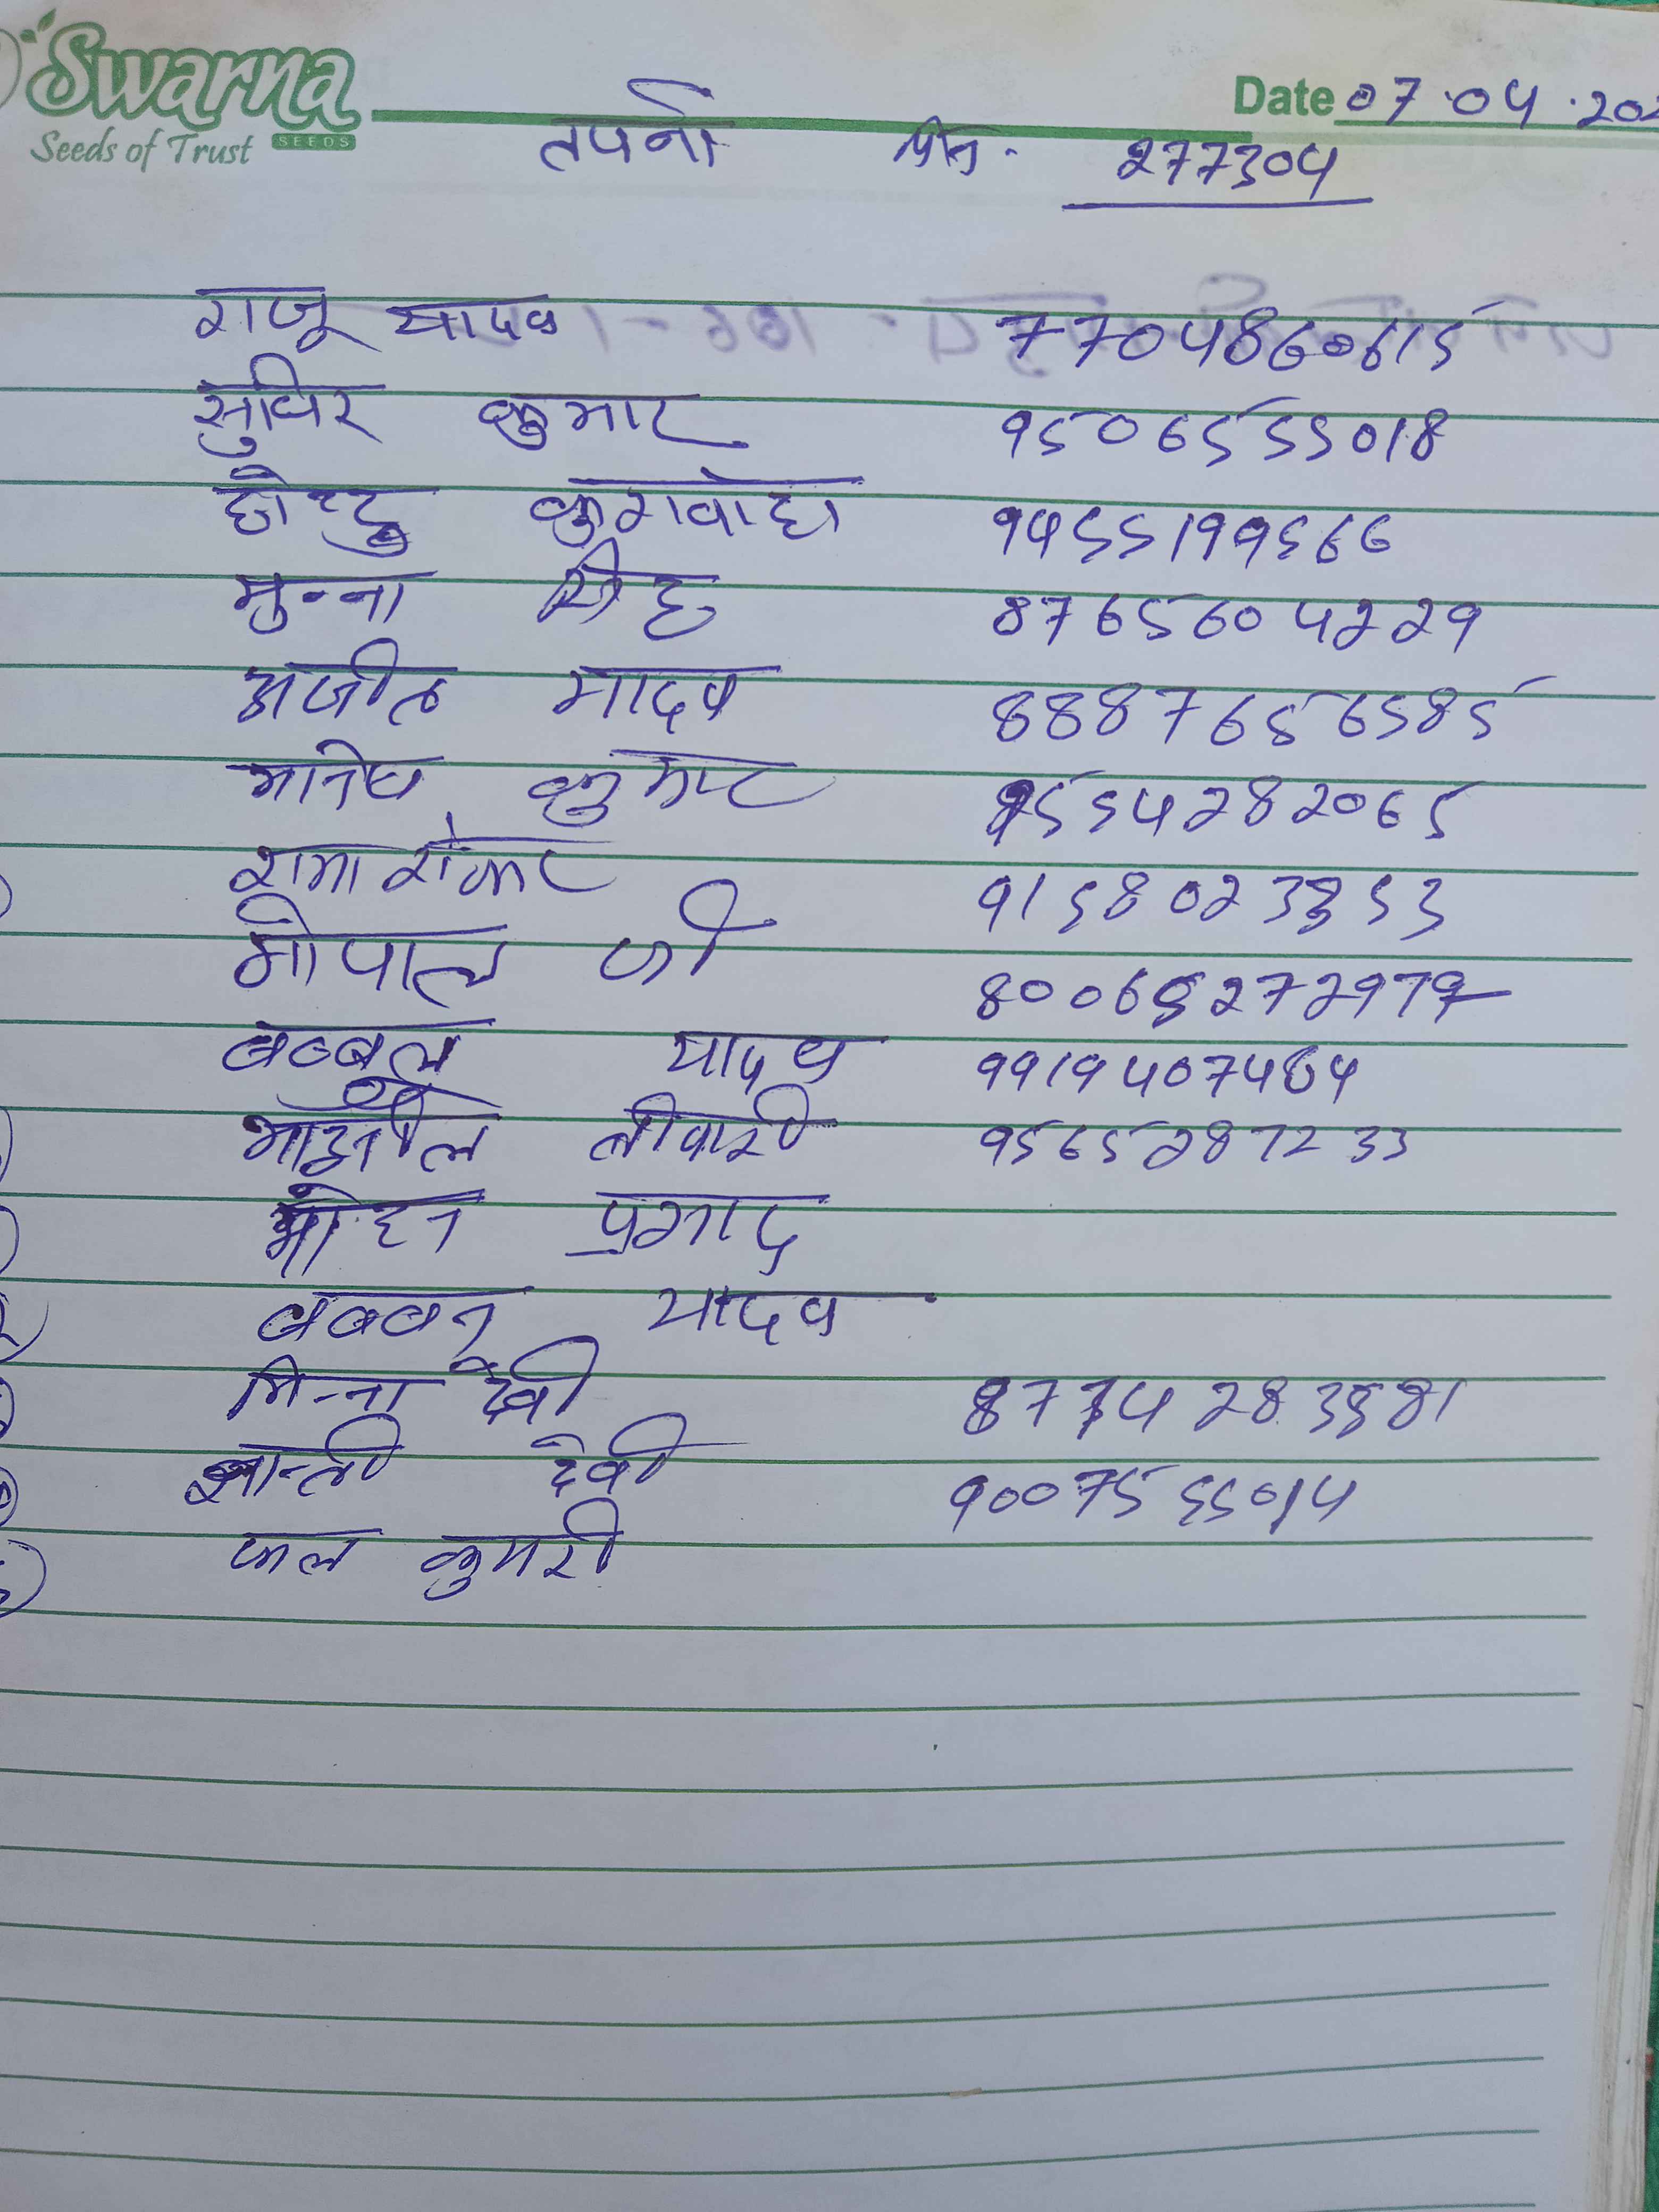 Swarna
Seeds of Trust SEEDS
Date 07.04.202
तपनी पिन. 277304
राजू यादव 7704860615
सुधिर कुमार 9506555018
छोटू कुशवाहा 9455199566
मुन्ना सिंह 8765604229
अजीत यादव 8887656585
कुमार 9554282065
रामाशंकर
गोपाल जी
बब्बल यादव 9919407464
तीवारी 9565287233
मोहन प्रसाद
बबबन यादव
मिन्ना देवी
शान्ती देवी 9007555014
फल कुमरी